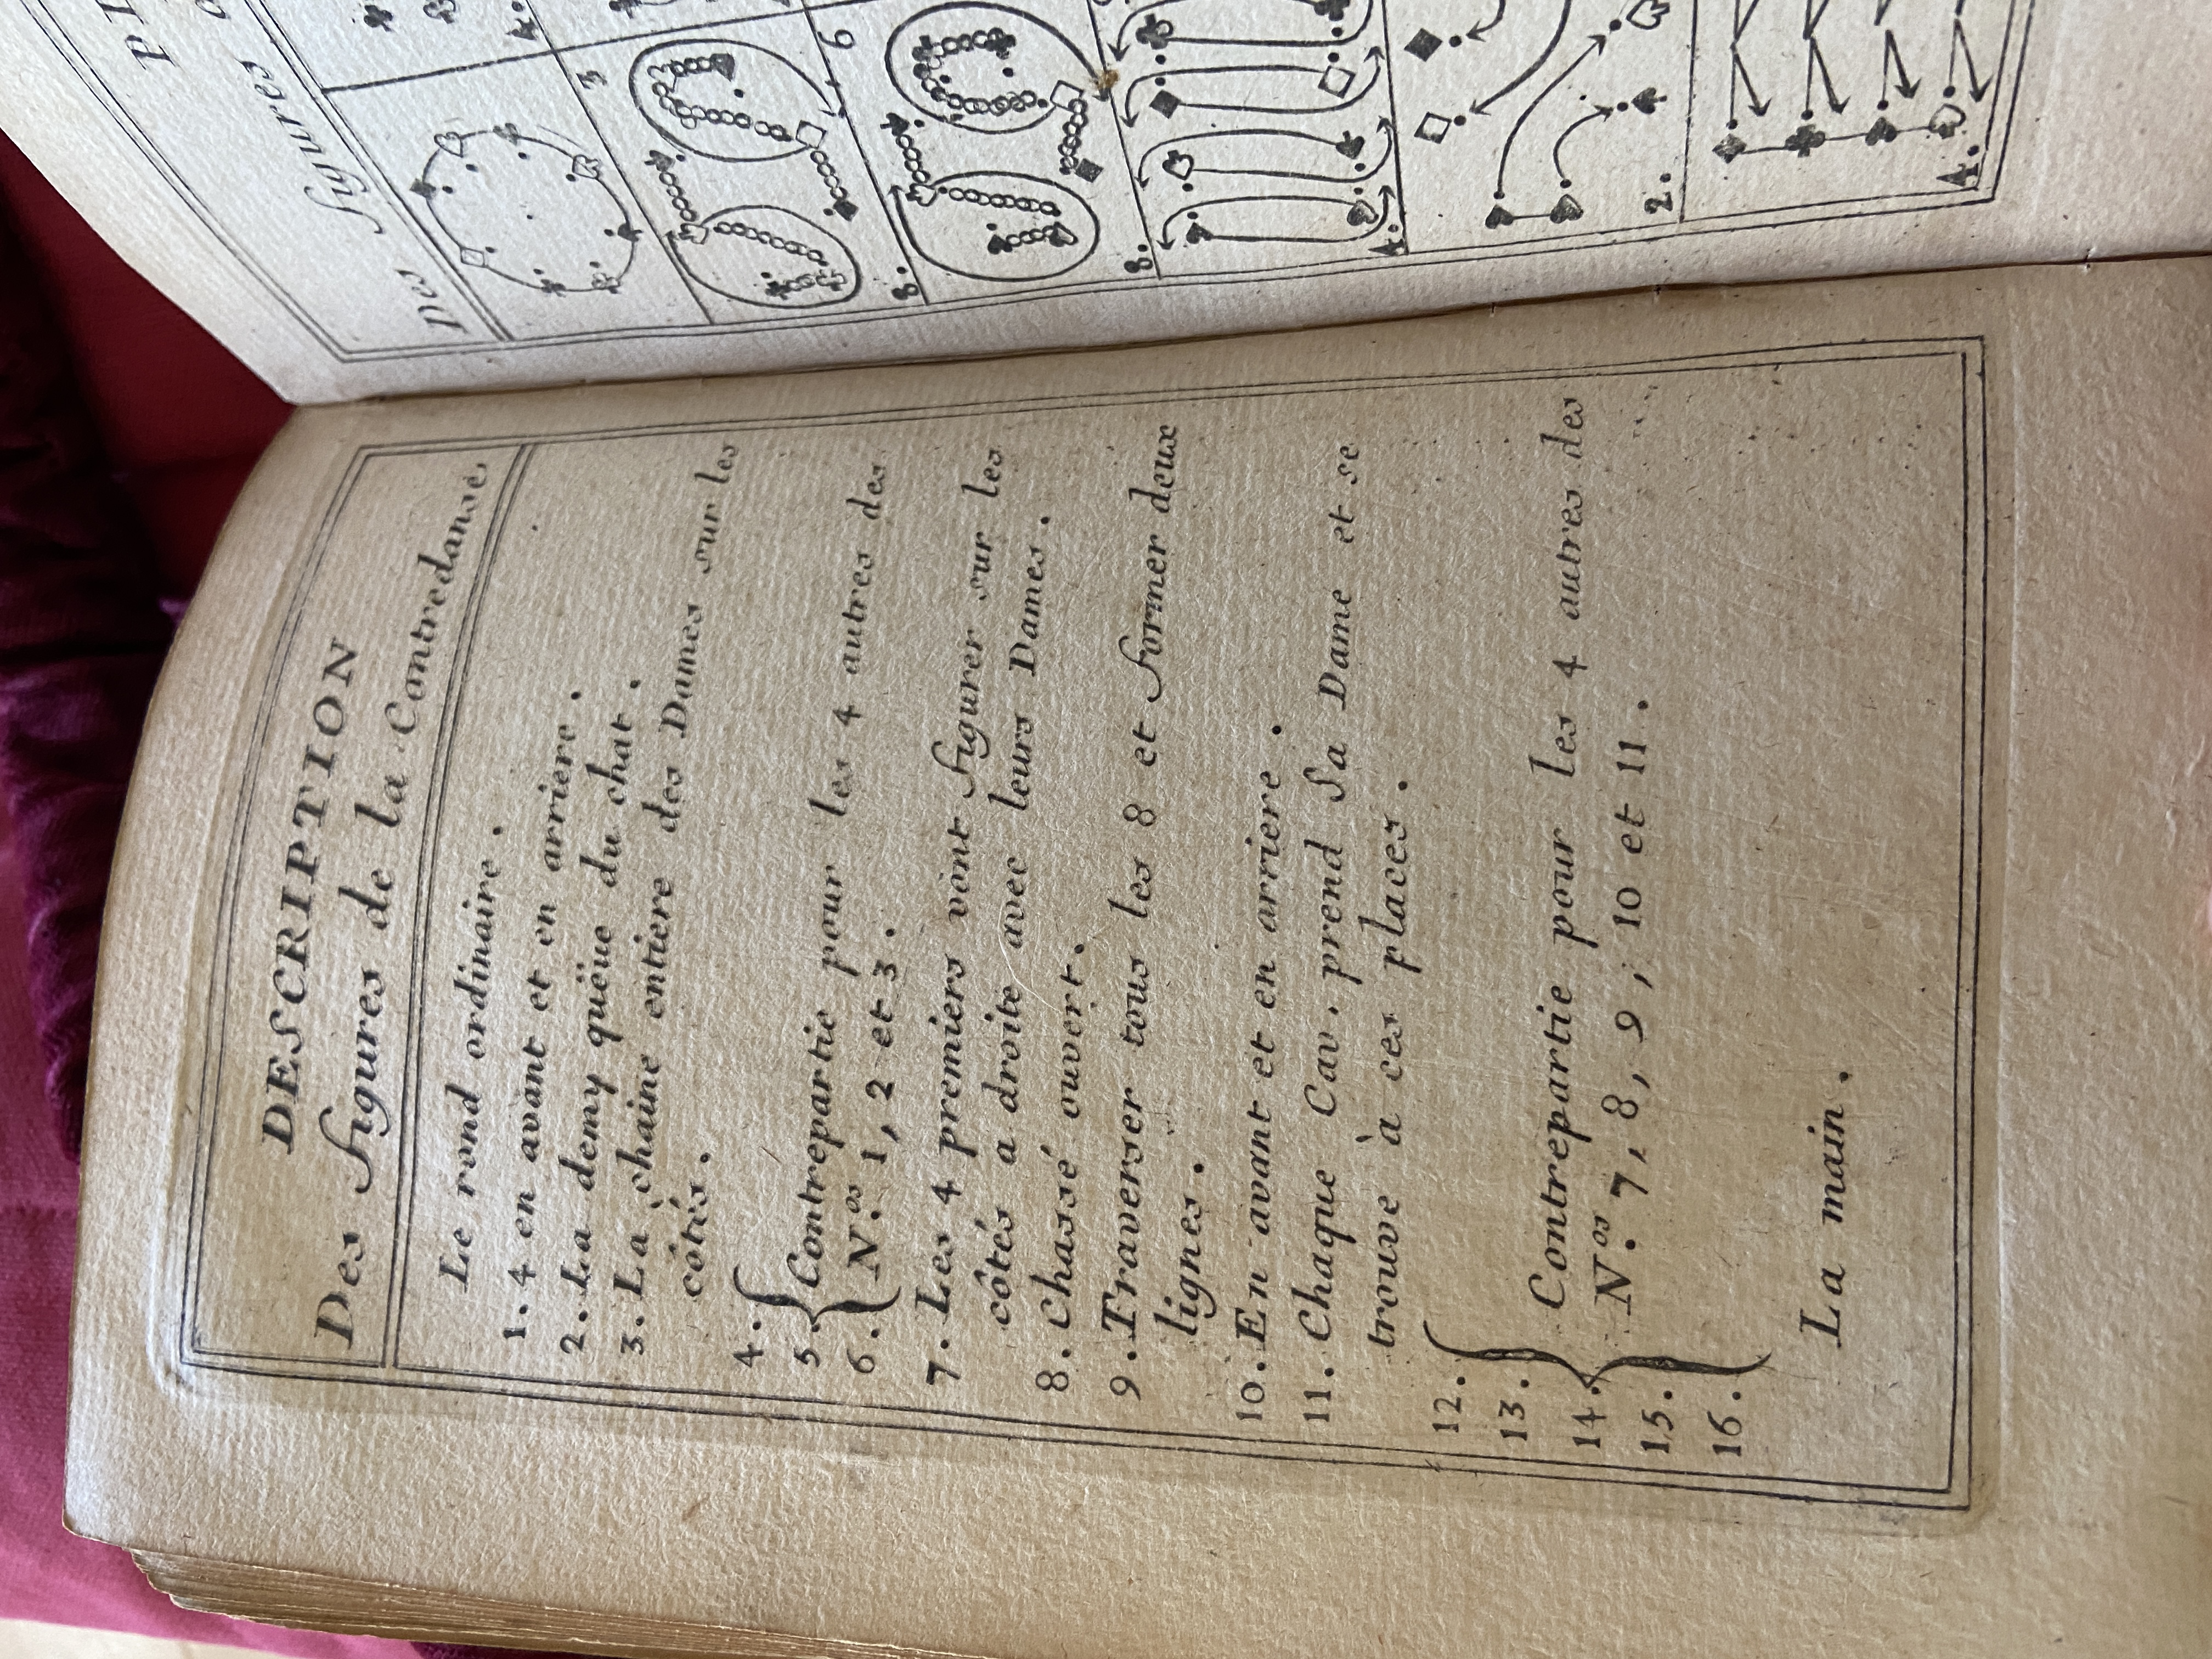 DESCRIPTION
Des figures de la Contredanse.
Le rond ordinaire.
1. 4 en avant et en arriere.
2. La demy queüe du chat.
3. La chaine entiere des Dames sur les
côtés.
4.
5. Contrepartie pour les 4 autres des
6. N.os 1, 2 et 3.
7. Les 4 premiers vont figurer sur les
côtés a droite avec leurs Dames.
8. Chassé ouvert.
9. Traverser tous les 8 et former deux
lignes.
10. En avant et en arriere.
11. Chaque Cav. prend Sa Dame et se
trouve à ces places.
12.
13. Contrepartie pour les 4 autres des
14. N.os 7, 8, 9, 10 et 11.
15.
16.
La main.
PL
Des figures
3
6
8.
8.
4.
4.
2.
4.